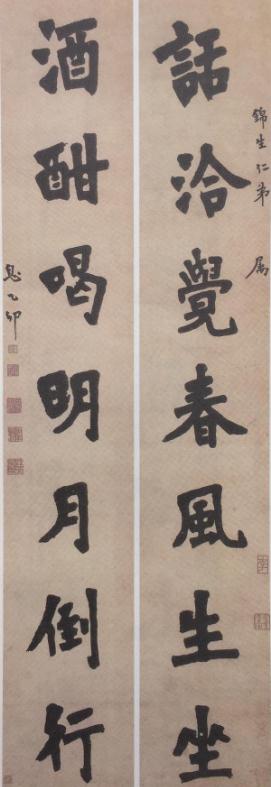 錦生仁弟 属
話洽覺春風生坐
酒酣喝明月倒行